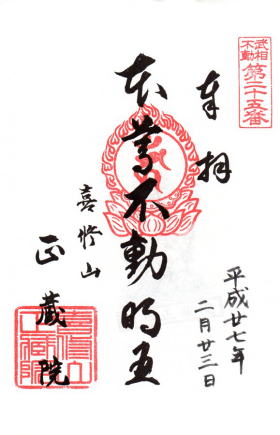 武相
不動
第二十五番
奉拝
平成廿七年
二月廿三日
本尊不動明王
喜修山
正蔵院